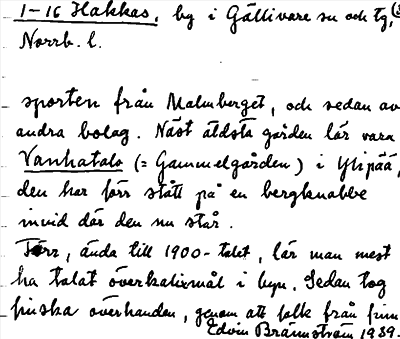 1-16 Hakkas, by i Gällivare sn och tg,
Norrb. l.
sporten från Malmberget, och sedan av
andra bolag. Näst äldsta gården lär vara
Vanhatalo (= Gammelgården) i Ylipää,
den har förr stått på en bergknabbe
invid där den nu står.
Förr, ända till 1900-talet, lär man mest
ha talat överkalixmål i byn. Sedan tog
finska överhanden, genom att folk från finn
Edvin Brännström 1939.